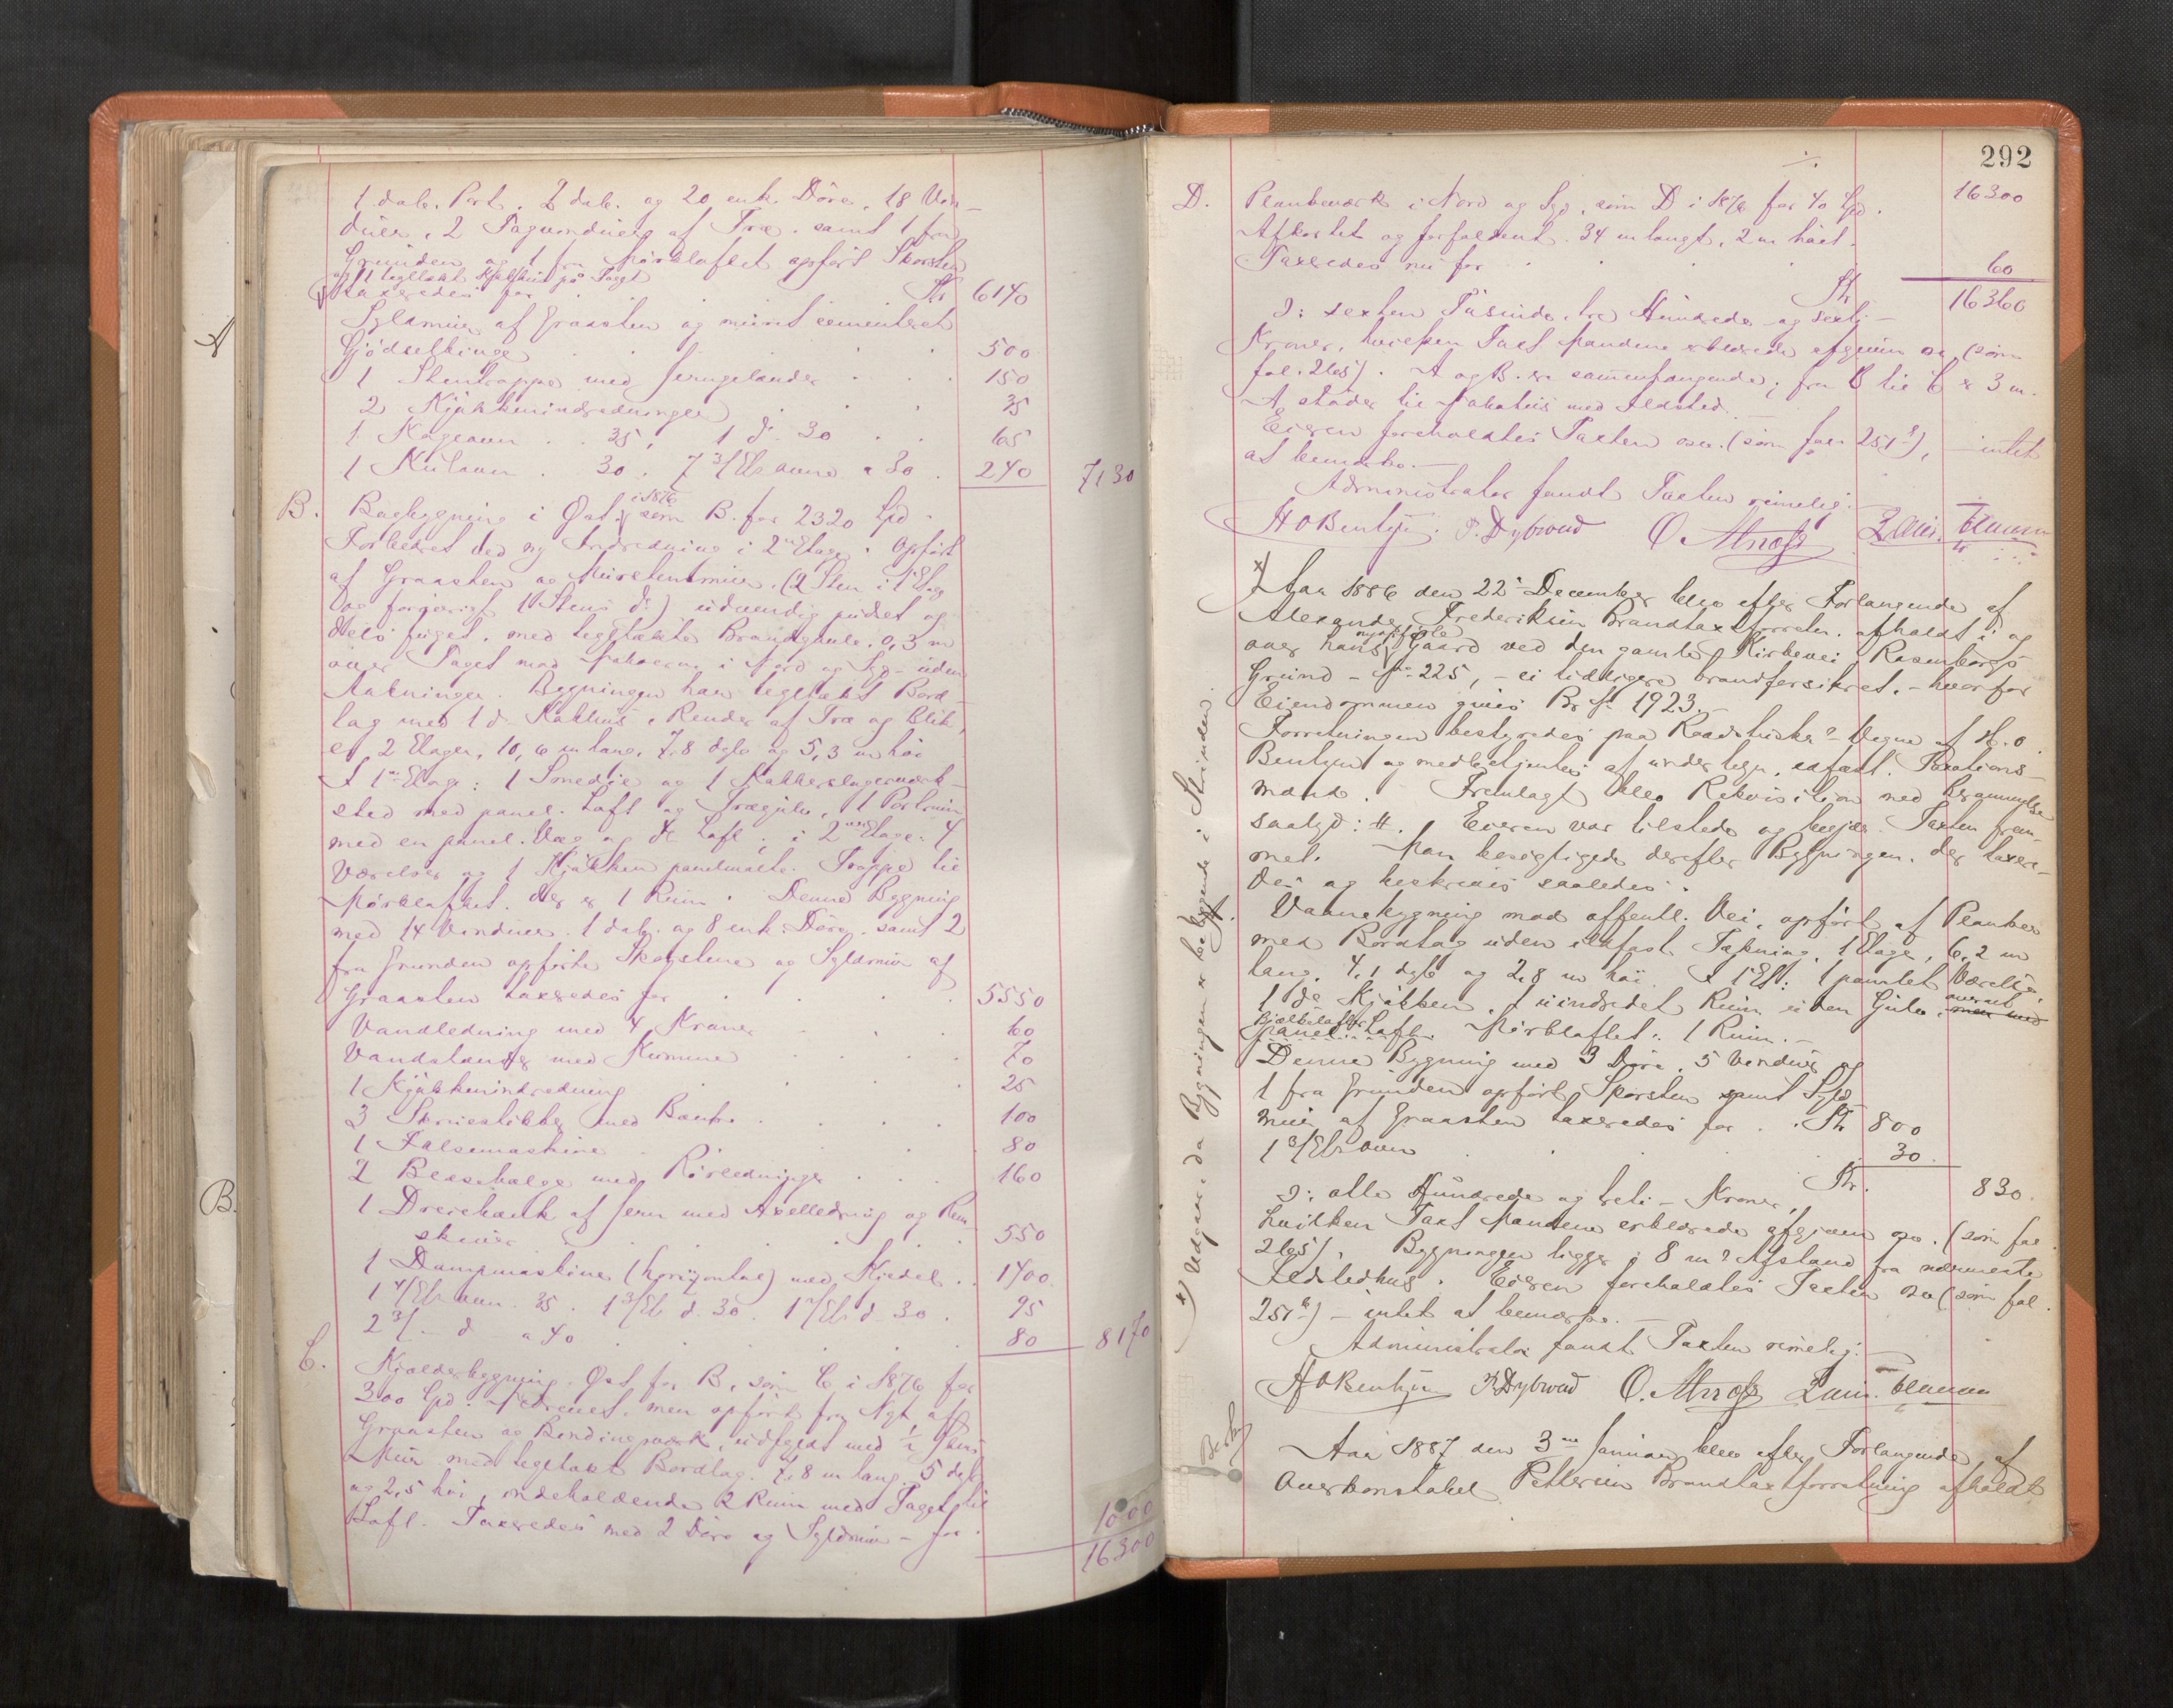 1 dob. Port, 2 dob. og 20 enk. Döre, 18 Vin-
duer, 2 Tagvinduer af Træ, samt 1 fra
Grunden og 1 fra Mörkloftet opfört Skorsten
og 1 tegltækt på Taget
taxeredes for . . . Kr. 6140
Syldmur af Graasten og muret cementeret
Gjödselbinge . . . 500
1 Stentrappe med Jerngelænder . . . 150
2 Kjökkenindredninger . . . 35
1 Kogeovn . . 35, 1 do 30 . . 65
1 Kulovn . 30. 7 3/Etg ovne a 30 . 240 7130
B. Bagbygning i Öst, i 1876 som B. for 2320 Spd.
Forbedret ved ny Indredning i 2den Etage. Opfört
af Graasten og Murstensmur. (2 Sten i 1e Etag
og forövrigt 1 Stens do) udvendig pudset og
dels fuget, med tegltækte Brandgavle, 0,3 m
over Taget mod Naboerne i Nord og Syd uden
Aabninger. Bygningen har tegltækt Bord
tag med 1 do Kakhus, Render af Træ og Blik,
er 2 Etager, 10,6 m lang, 7,8 dyb og 5,3 m höi
I 1ste Etage: 1 Smedje og 1 Kobberslagerværk-
sted med panel. Loft og Trægulv, 1 Portrum
med en panel. Væg og do Loft; i 2den Etage 4
Værelser og 1 Kjökken panelmalte. Trappe til
Mörkloftet, der er 1 Rum. Denne Bygning
med 14 Vinduer, 1 dob. og 8 enk. Döre, samt 2
fra Grunden opförte Skorstene og Syldmur af
Graasten taxeredes for . . . 5550
Vandledning med 4 Kraner . . . 60
Vandstander med Kumme . . . 70
1 Kjökkenindredning . . . 25
3 Skruestikker med Bænke . . . 100
1 Falsemaskine . . . 80
2 Blæsebælge med Rörledninger . . . 160
1 Dreiebænk af Jern med Axelledning og Rem
skiver . . . 550
1 Dampmaskine (horizontal) med Kjedel . . 1400
1 4/Etg ovn 35. 1 3/Etg do 30. 1 2/Etg do 30. 95
2 3/- do a 40 . . . 80 8170
C. Kjælderbygning Öst for B, som C i 1876 for
300 Spd. Nedrevet, men opfört fra Nyt af
Graasten og Bindingsværk, udfyldt med 1/2 Stens
Mur med tegltakt Bordtag. 7,8 m lang, 5 dyb
og 2,5 höi, indeholdende 2 Rum med Taget til
Loft. Taxeredes med 2 Döre og Syldmur - for . 1000
16300
292
./.
D. Plankeværk i Nord og Syd, som D i 1876 for 40 Spd. 16300
Afkortet og forfaldent. 34 m langt, 2 m höit.
Taxeredes nu for . . . 60
Kr. 16360
ɔ: sexten Tusinde, tre Hundrede og sexti -
Kroner, hvilken Taxt Mændene erklærede afgiven osv. (som
fol. 265). A og B. er sammenhængende; fra B til C er 3 m.
A stöder til Nabohus med Ildsted.
Eieren foreholdtes Taxten osv. (som fol. 251b), - intet
at bemærke. -
Administrator fandt Taxten rimelig.
H O Bentzen. P. Dybwad O. Moss
x) Aar 1886 den 22de December blev efter Forlangende af
Alexander Frederiksen Brandtaxtforretn. afholdt i og
over hans nyopförte Gaard ved den gamle Kirkevei, Rosenborgs
Grund - No 225, - ei tidligere brandforsikret, - hvorfor
Eiendommen gives Br. No 1923. -
Forretningen bestyredes paa Raadstuskr:s Vegne af H. O.
Bentzen og medbetjentes af undertegn. edfæst. Taxations-
mænd. - Fremlagt blev Rekvisition med Berammelse
saalyd: #. Eieren var tilstede og begjær. Taxten frem
met. Man besigtigede derefter Bygningen, der taxere-
des og beskrives saaledes:
A. Vaanebygning mod offentl. Vei, opfört af Planker
med Bordtag uden ildfast Tækning, 1 Etage, 6,2 m
lang, 4,1 dyb og 2,8 m höi. I 1e Etg: 1 pamlet Værelse,
1 do Kjökken, 1 uindredet Rum uden Gulv, overalt
men med
Bjelkelofter
panel Loft. Mörkloftet: 1 Rum. -
Denne Bygning med 3 Döre, 5 Vinduer og
1 fra Grunden opfört Skorsten samt Syld-
mur af Graasten taxeredes for . . Kr. 800
1 3/Etg ovn . . . 30
Kr. 830.
ɔ: otte Hundrede og treti - Kroner,
hvilken Taxt Mændene erklærede afgiven osv. (som fol.
265). Bygningen ligger i 8 m:s Afstand fra nærmeste
Ildstedhus. Eieren foreholdtes Taxten osv (som fol.
251b) - intet at bemærke. -
Administrator fandt Taxten rimelig. -
H O Bentzen P. Dybwad O. Moss
x) Udgaar, da Bygningen er beliggende i Strinden.
Aar 1887 den 3die Januar blev efter Forlangende af
Overkonstabel Pettersen Brandtaxtforretning afholdt
A
B.